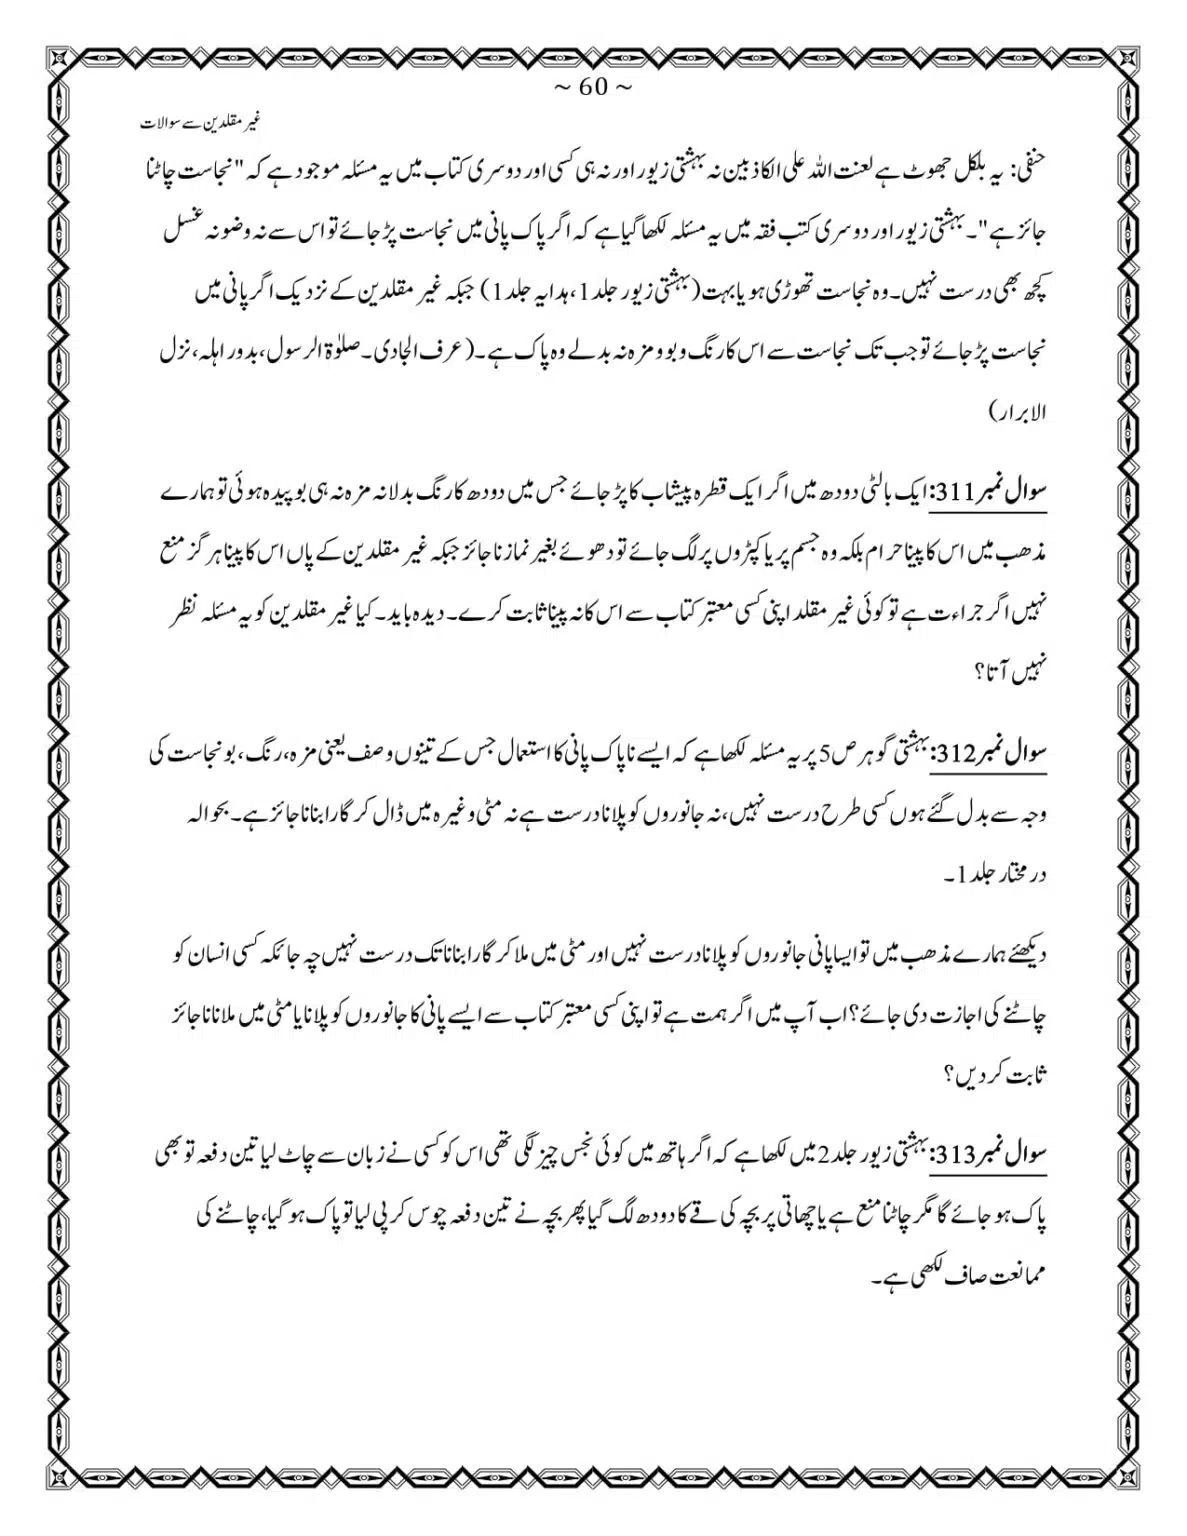 ~ 60 ~
غیر مقلدین سے سوالات
حنفی: یہ بلکل جھوٹ ہے لعنت اللہ علی الکاذبین نہ بہشتی زیور اور نہ ہی کسی اور دوسری کتاب میں یہ مسئلہ موجود ہے کہ "نجاست چاٹنا
جائز ہے"۔ بہشتی زیور اور دوسری کتب فقہ میں یہ مسئلہ لکھا گیا ہے کہ اگر پاک پانی میں نجاست پڑ جائے تو اس سے نہ وضو نہ غسل
کچھ بھی درست نہیں۔ وہ نجاست تھوڑی ہو یا بہت (بہشتی زیور جلد 1، ہدایہ جلد 1) جبکہ غیر مقلدین کے نزدیک اگر پانی میں
نجاست پڑ جائے تو جب تک نجاست سے اس کا رنگ و بو و مزہ نہ بدلے وہ پاک ہے۔ (عرف الجادی۔ صلوٰۃ الرسول، بدور اہلہ، نزل
الابرار)
سوال نمبر 311: ایک بالٹی دودھ میں اگر ایک قطرہ پیشاب کا پڑ جائے جس میں دودھ کا رنگ بدلا نہ مزہ نہ ہی بو پیدہ ہوئی تو ہمارے
مذھب میں اس کا پینا حرام بلکہ وہ جسم پر یا کپڑوں پر لگ جائے تو دھوئے بغیر نماز ناجائز جبکہ غیر مقلدین کے پاں اس کا پینا ہرگز منع
نہیں اگر جراءت ہے تو کوئی غیر مقلد اپنی کسی معتبر کتاب سے اس کا نہ پینا ثابت کرے۔ دیدہ باید۔ کیا غیر مقلدین کو یہ مسئلہ نظر
نہیں آتا؟
سوال نمبر 312: بہشتی گوہر ص 5 پر یہ مسئلہ لکھا ہے کہ ایسے ناپاک پانی کا استعمال جس کے تینوں وصف یعنی مزہ، رنگ، بو نجاست کی
وجہ سے بدل گئے ہوں کسی طرح درست نہیں، نہ جانوروں کو پلانا درست ہے نہ مٹی وغیرہ میں ڈال کر گارا بنانا جائز ہے۔ بحوالہ
در مختار جلد 1۔
دیکھئے ہمارے مذھب میں تو ایسا پانی جانوروں کو پلانا درست نہیں اور مٹی میں ملا کر گارا بنانا تک درست نہیں چہ جائکہ کسی انسان کو
چاٹنے کی اجازت دی جائے؟ اب آپ میں اگر ہمت ہے تو اپنی کسی معتبر کتاب سے ایسے پانی کا جانوروں کو پلانا یا مٹی میں ملانا ناجائز
ثابت کر دیں؟
سوال نمبر 313: بہشتی زیور جلد 2 میں لکھا ہے کہ اگر ہاتھ میں کوئی نجس چیز لگی تھی اس کو کسی نے زبان سے چاٹ لیا تین دفعہ تو بھی
پاک ہو جائے گا مگر چاٹنا منع ہے یا چھاتی پر بچہ کی قے کا دودھ لگ گیا پھر بچہ نے تین دفعہ چوس کر پی لیا تو پاک ہو گیا، چاٹنے کی
ممانعت صاف لکھی ہے۔